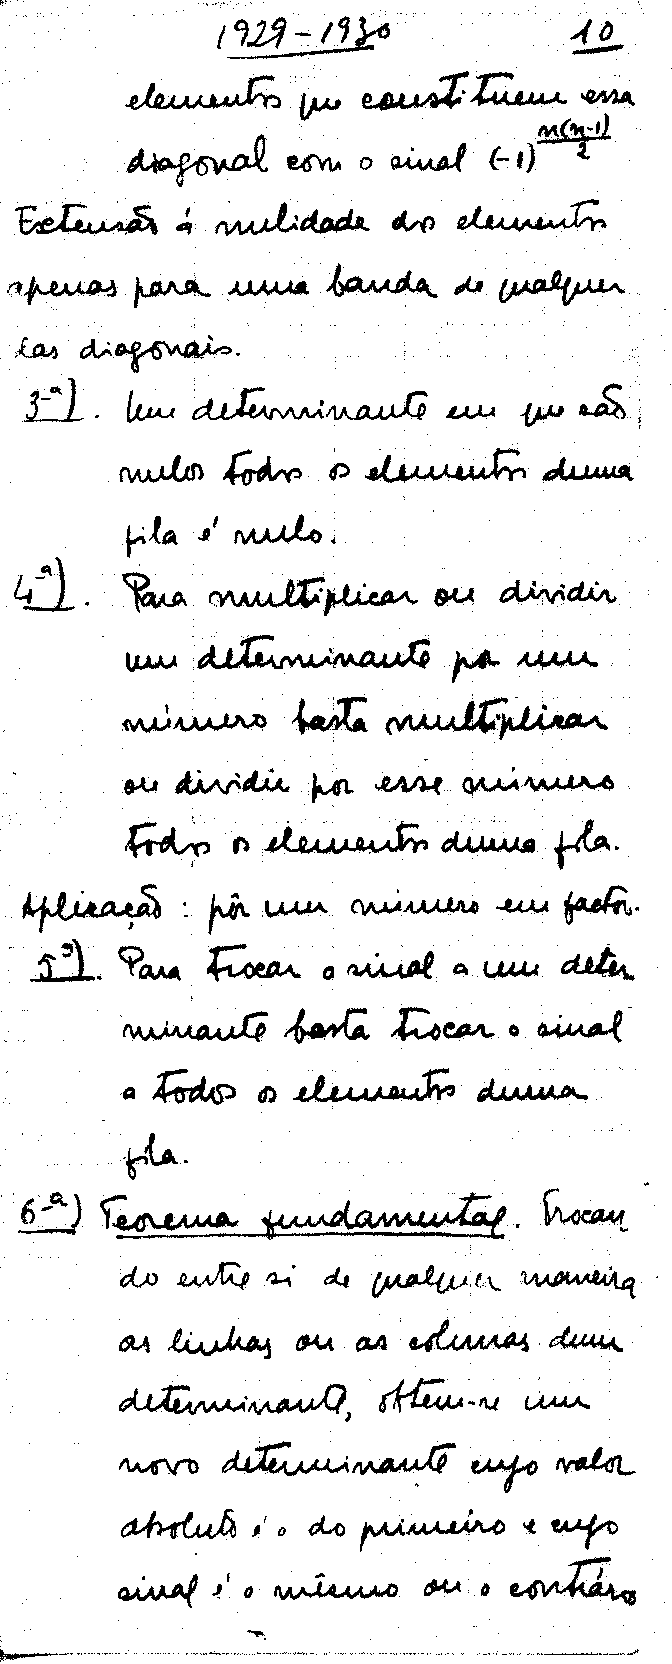 1929-1930 10
elementos que constituem essa
diagonal com o sinal (-1)^{\frac{n(n-1)}{2}}
Extensão á nulidade dos elementos
apenas para uma banda de qualquer
das diagonais.
3-ª). Um determinante em que são
nulos todos os elementos duma
fila é nulo.
4-ª). Para multiplicar ou dividir
um determinante por um
número basta multiplicar
ou dividir por esse número
todos os elementos duma fila.
Aplicação: pôr um número em factor.
5ª). Para trocar o sinal a um deter
minante basta trocar o sinal
a todos os elementos duma
fila.
6-ª) Teorema fundamental. Trocan
do entre si de qualquer maneira
as linhas ou as colunas dum
determinante, obtem-se um
novo determinante cujo valor
absoluto é o do primeiro e cujo
sinal é o mesmo ou o contrário